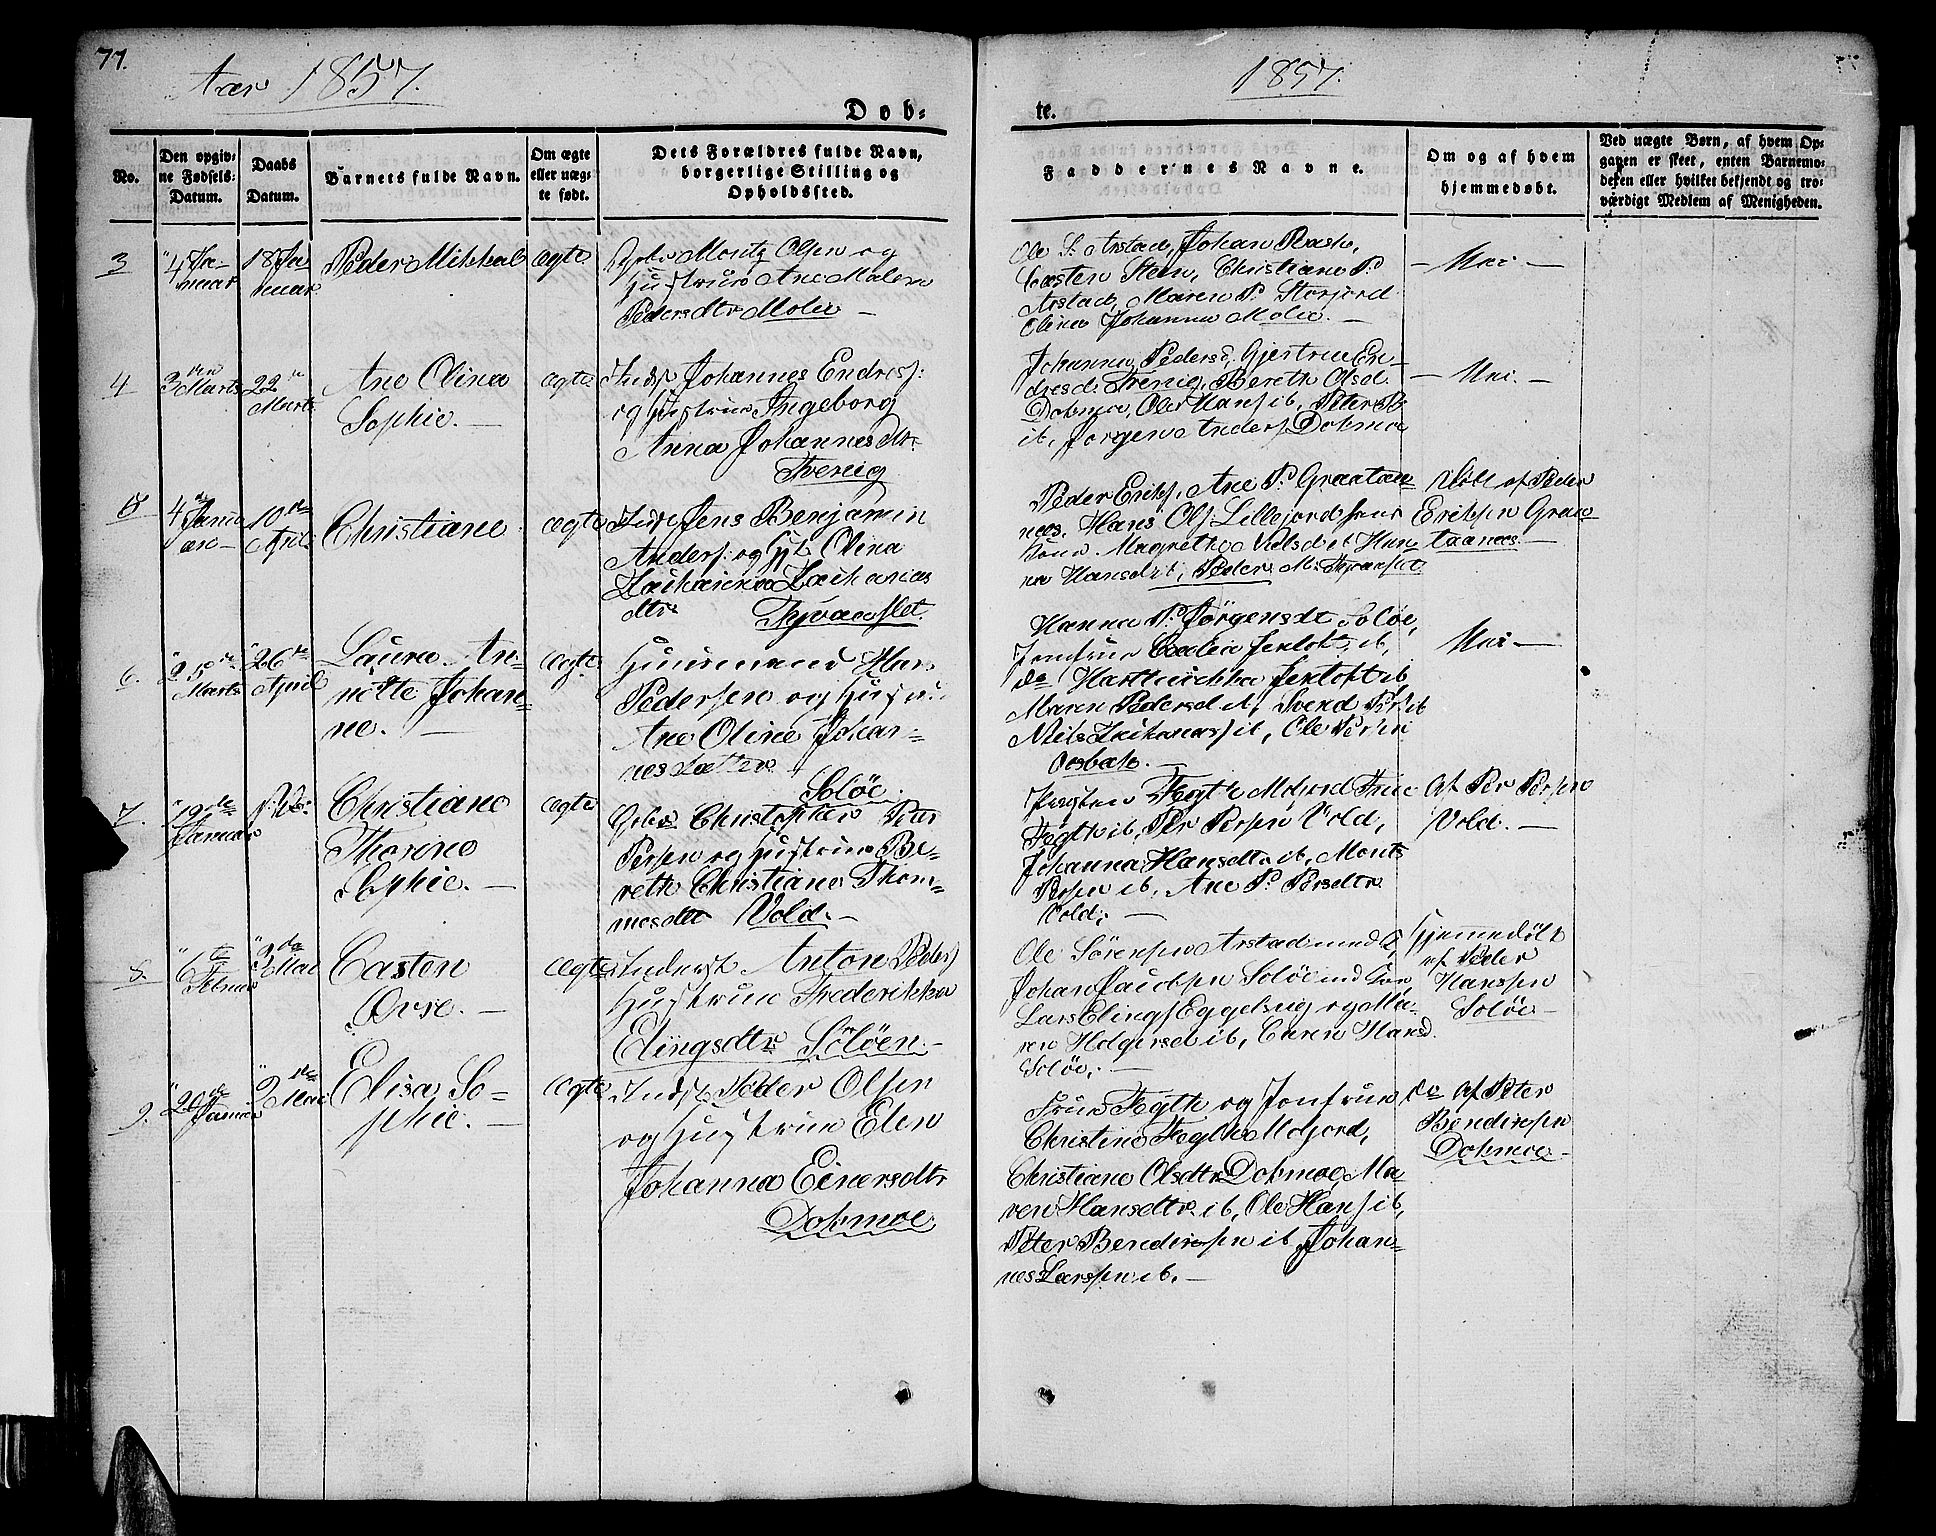 77.
Aar 1857.
1857.
Dob-
te.
No.
Den opgiv-
ne Fødsels-
Datum.
Daabs
Datum.
Barnets fulde Navn.
Om ægte
eller uæg-
te født.
Dets Forældres fulde Navn,
borgerlige Stilling og
Opholdssted.
Faddernes Navne.
Om og af hvem
hjemmedøbt.
Ved uægte Børn, af hvem Op-
gaven er skeet, enten Barnemo-
deren eller hvilket bekjendt og tro-
værdigt Medlem af Menigheden.
3
4 Ja-
nuar
18 Ja
nuar
Peder Mikkal
ægte
Montz Olsen og
Hustrue Ane Malene
Pedersdtr Molie —
Ole S. Arstad, Johan Rask,
Casten Steen, Christiane P.
Arstad, Maren P. Storjord
Olina Johanna Molie. —
— Nei —
4
3 Marts
22
Marts
Ane Olina
Sophie. —
ægte
Inds Johannes Endres:
og Hustrue Ingeborg
Anna Johannesdtr.
Trenig
Johanna Pedersd, Gjertrue En-
dresd. Trenig, Bereth Olsd.
Dokmoe, Ole Hans ib, Peter P.
ib, Jørgen Anders Dokmoe
— Nei. —
5
4 Janu
ari —
10de
April
Christiane
ægte
Inds Jens Benjamin
Anders: og Hst Olina
Zachariaa Zacharias
dtr.
Peder Eriks, Ane P. Graatan-
næs, Hans Ols: Lillejord hans
Kone Magrethe Nielsd ib, Han-
na Hansdt ib, Peder M.
Døbt af Peder
Eriksen Graa-
taanæs. —
6.
25de
Marts
26de
April
Laura An-
notte Johan-
ne. —
ægte
Huusmand Hans
Pedersen og Hustrue
Ane Oline Johan-
nesdatter
Soløe.
Hanna P. Jørgensdt Soløe,
Jomfrue ib,
do ib
Maren Pedersd ib, Svend Pers ib
Niels Zacharias ib, Ole Persen
— Nei —
7.
19de
Januar
Christiane
Thorine
Sophie. —
ægte
Gbr. Christopher Peter
Persen og Hustrue Be-
reth Christiane Thom-
mesdtr Vold. —
Fogten Fogth Mojord Frue
Fogth ib, Per Persen Vold,
Johanna Hansdtr ib, Monts
Persen ib, Ane P. Persdtr
Vold. —
Af Per Persen
Vold. —
8.
6te
Febuar
3de
Mai
Casten
Ovse. —
ægte
Inderst Anton Peders
Hustrue Frederikka
Elingsdtr Soløen. —
Ole Sörensen Arstad med K,
Johan Jacobsen Soløe med Kone,
Lars Elings Eggesvig og Ma-
ren Holgersd ib, Caren Hansd.
Soløe. —
Hjemmedøbt
af Peder
Hanssen
Soløe —
9.
20de
Januar
Mai
Elisa So-
phie. —
ægte
Inds Peder Olsen
og Hustrue Elen
Johanna Einersdtr
Dokmoe
Frue Fogth og Jomfrue
Christine Fogth Mojord,
Christiane Olsdtr Dokmoe, Ma-
ren Hansdtr ib, Ole Hans ib,
Peter Bendixsen ib Johan-
nes Larssen ib. —
do af Peter
Bendixsen
Dokmoe —